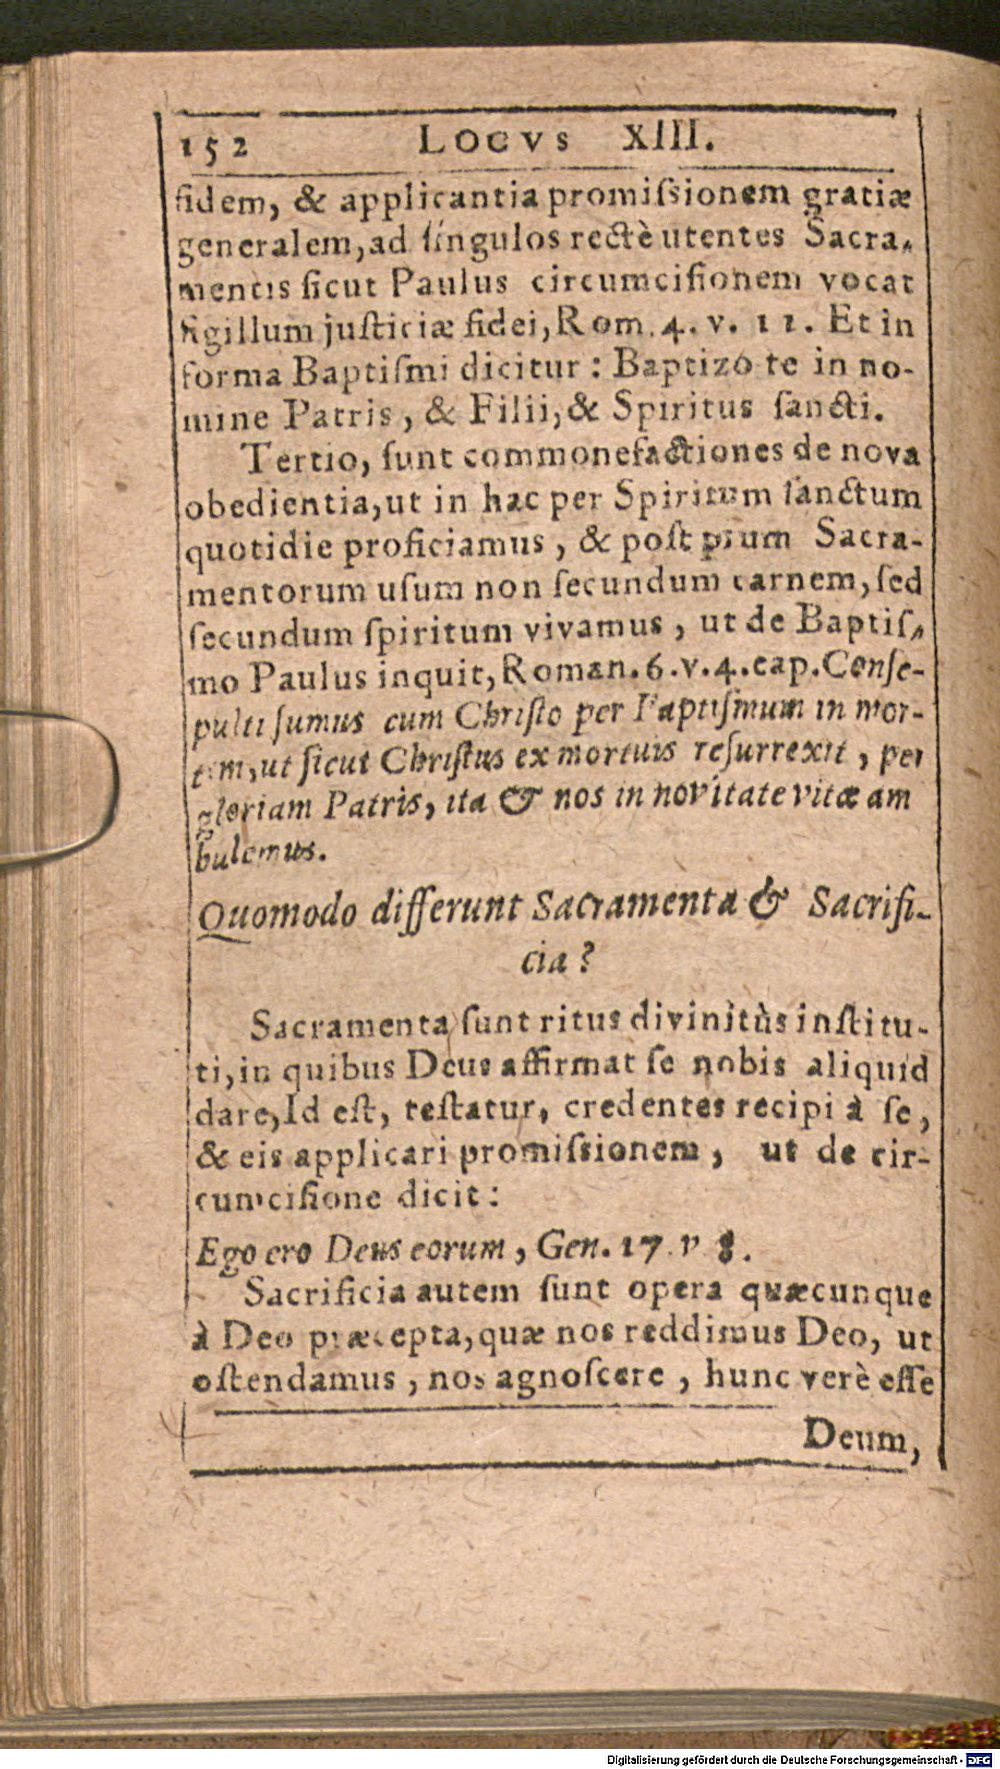 152 LOCVS XIII.
fidem, & applicantia promiſsionem gratiæ
generalem, ad ſingulos rectè utentes Sacra-
mentis ſicut Paulus circumciſionem vocat
ſigillum juſticiæ fidei, Rom. 4. v. 11. Et in
forma Baptiſmi dicitur: Baptizo te in no-
mine Patris, & Filii, & Spiritus ſancti.
Tertio, ſunt commonefactiones de nova
obedientia, ut in hac per Spiritum ſanctum
quotidie proficiamus, & poſt pium Sacra-
mentorum uſum non ſecundum carnem, ſed
ſecundum ſpiritum vivamus, ut de Baptiſ-
mo Paulus inquit, Roman. 6. v. 4. cap. Conſe-
pulti ſumus cum Chriſto per Baptiſmum in mor-
tem, ut ſicut Chriſtus ex mortuis reſurrexit, per
gloriam Patris, ita & nos in novitate vitæ am
bulemus.
Quomodo differunt Sacramenta & Sacrifi-
cia?
Sacramenta ſunt ritus divinitùs inſtitu-
ti, in quibus Deus affirmat ſe nobis aliquid
dare, Id eſt, teſtatur, credentes recipi à ſe,
& eis applicari promiſsionem, ut de cir-
cumciſione dicit:
Ego ero Deus eorum, Gen. 17. v 8.
Sacrificia autem ſunt opera quæcunque
à Deo præcepta, quæ nos reddimus Deo, ut
oſtendamus, nos agnoſcere, hunc verè eſſe
Deum,
Digitalisierung gefördert durch die Deutsche Forschungsgemeinschaft - DFG